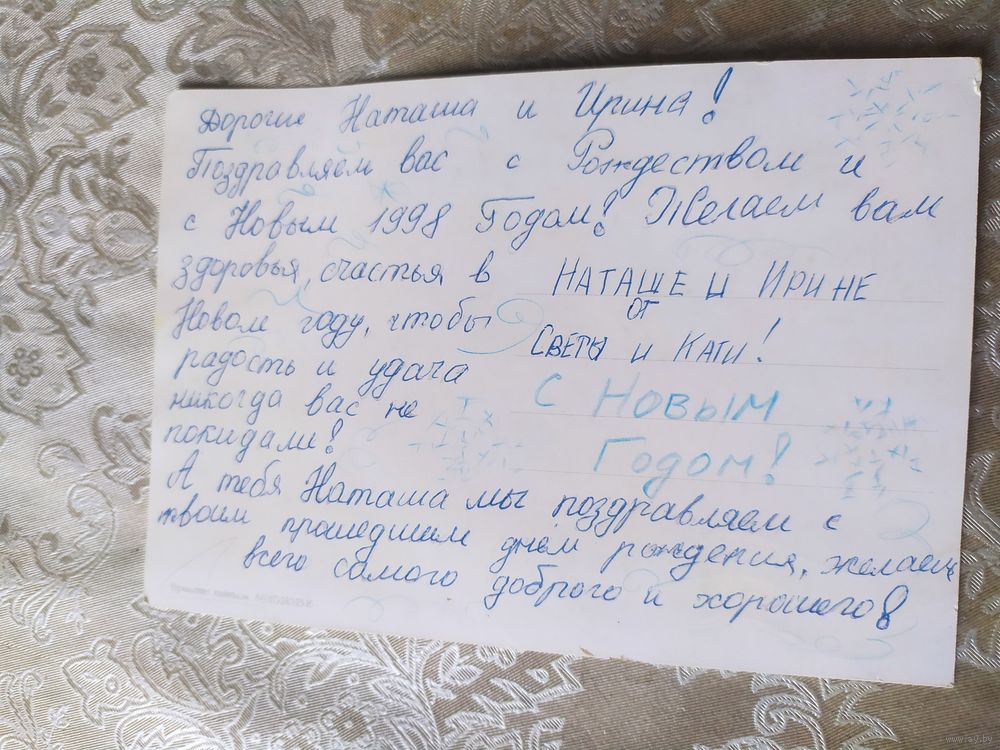 Дорогие Наташа и Ирина!
Поздравляем вас с Рождеством и
с Новым 1998 Годом! Желаем вам
здоровья, счастья в
Новом году, чтобы
радость и удача
никогда вас не
покидали!
НАТАШЕ И ИРИНЕ
ОТ
СВЕТЫ И КАТИ!
С НОВЫМ
ГОДОМ!
А тебя Наташа мы поздравляем с
твоим прошедшим днём рождения, желаем
всего самого доброго и хорошего!
www.ay.by